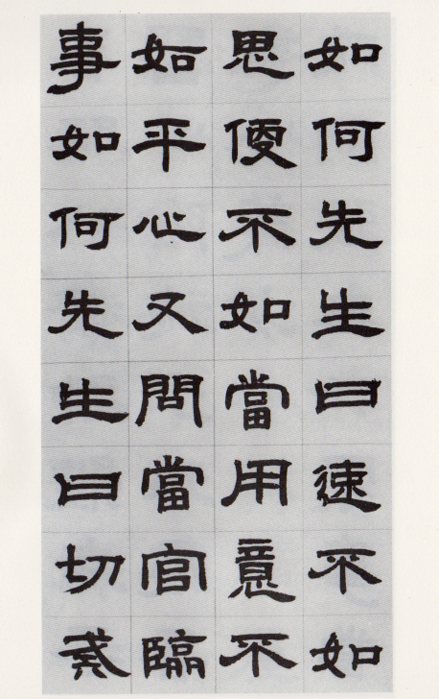 如何先生曰速不如
思便不如當用意不
如平心又問當官臨
事如何先生曰切戒